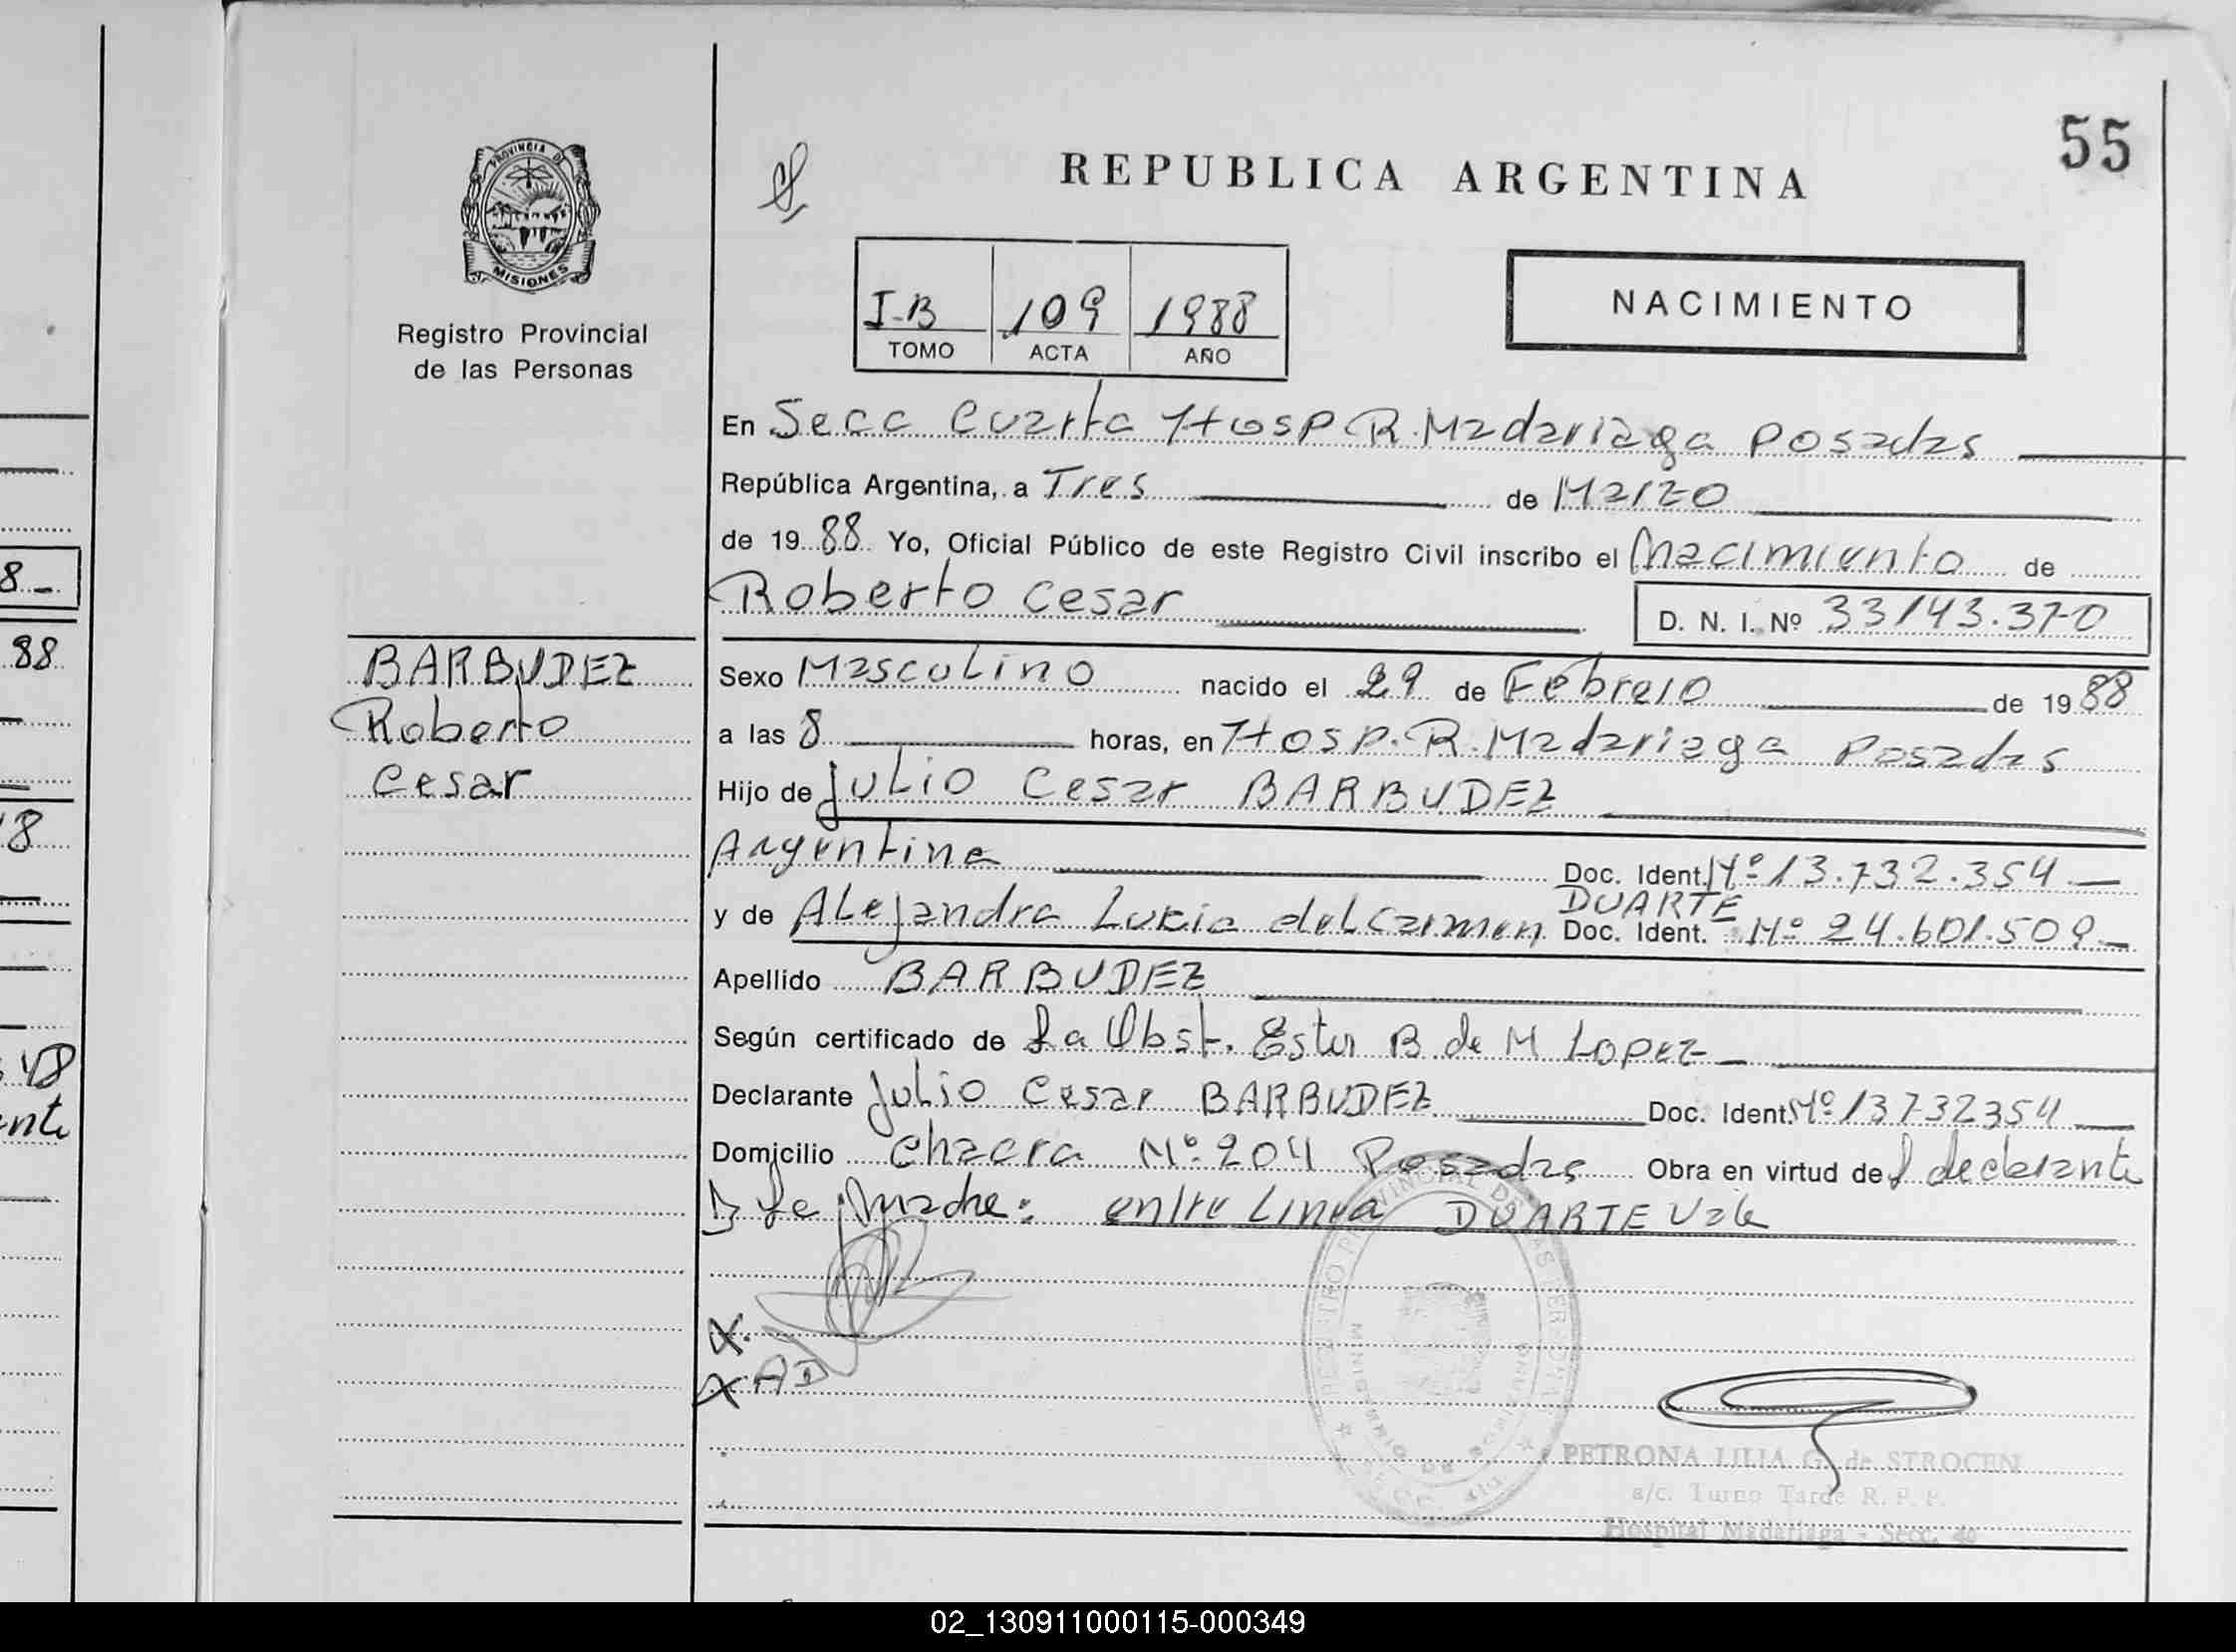 8.-
88
18
48
ente
PROVINCIA DE
MISIONES
Registro Provincial
de las Personas
BARBUDEZ
Roberto
Cesar
55
REPUBLICA ARGENTINA
I-B 109 1988
TOMO ACTA AÑO
NACIMIENTO
En Secc Cuarta Hosp R. Madariaga Posadas
República Argentina, a Tres de Marzo
de 1988 Yo, Oficial Público de este Registro Civil inscribo el Nacimiento de
Roberto Cesar D. N. I. Nº 33143.370
Sexo Masculino nacido el 29 de Febrero de 1988
a las 8 horas, en Hosp. R. Madariaga Posadas
Hijo de Julio Cesar BARBUDEZ
Argentina Doc. Ident. Nº 13.732.354.-
DUARTE
y de Alejandra Lucia del Carmen Doc. Ident. Nº 24.601.509.-
Apellido BARBUDEZ
Según certificado de La Obst. Ester B. de M Lopez-
Declarante Julio Cesar BARBUDEZ Doc. Ident. Nº 13732354
Domicilio Chacra Nº 204 Posadas Obra en virtud de l declarante
y la Madre: entre Linea DUARTE Vale
X.
X AD
PETRONA LILIA G. de STROCEN
a/c. Turno Tarde R. P. P.
Hospital Madariaga - Secc. 4a
02_130911000115-000349